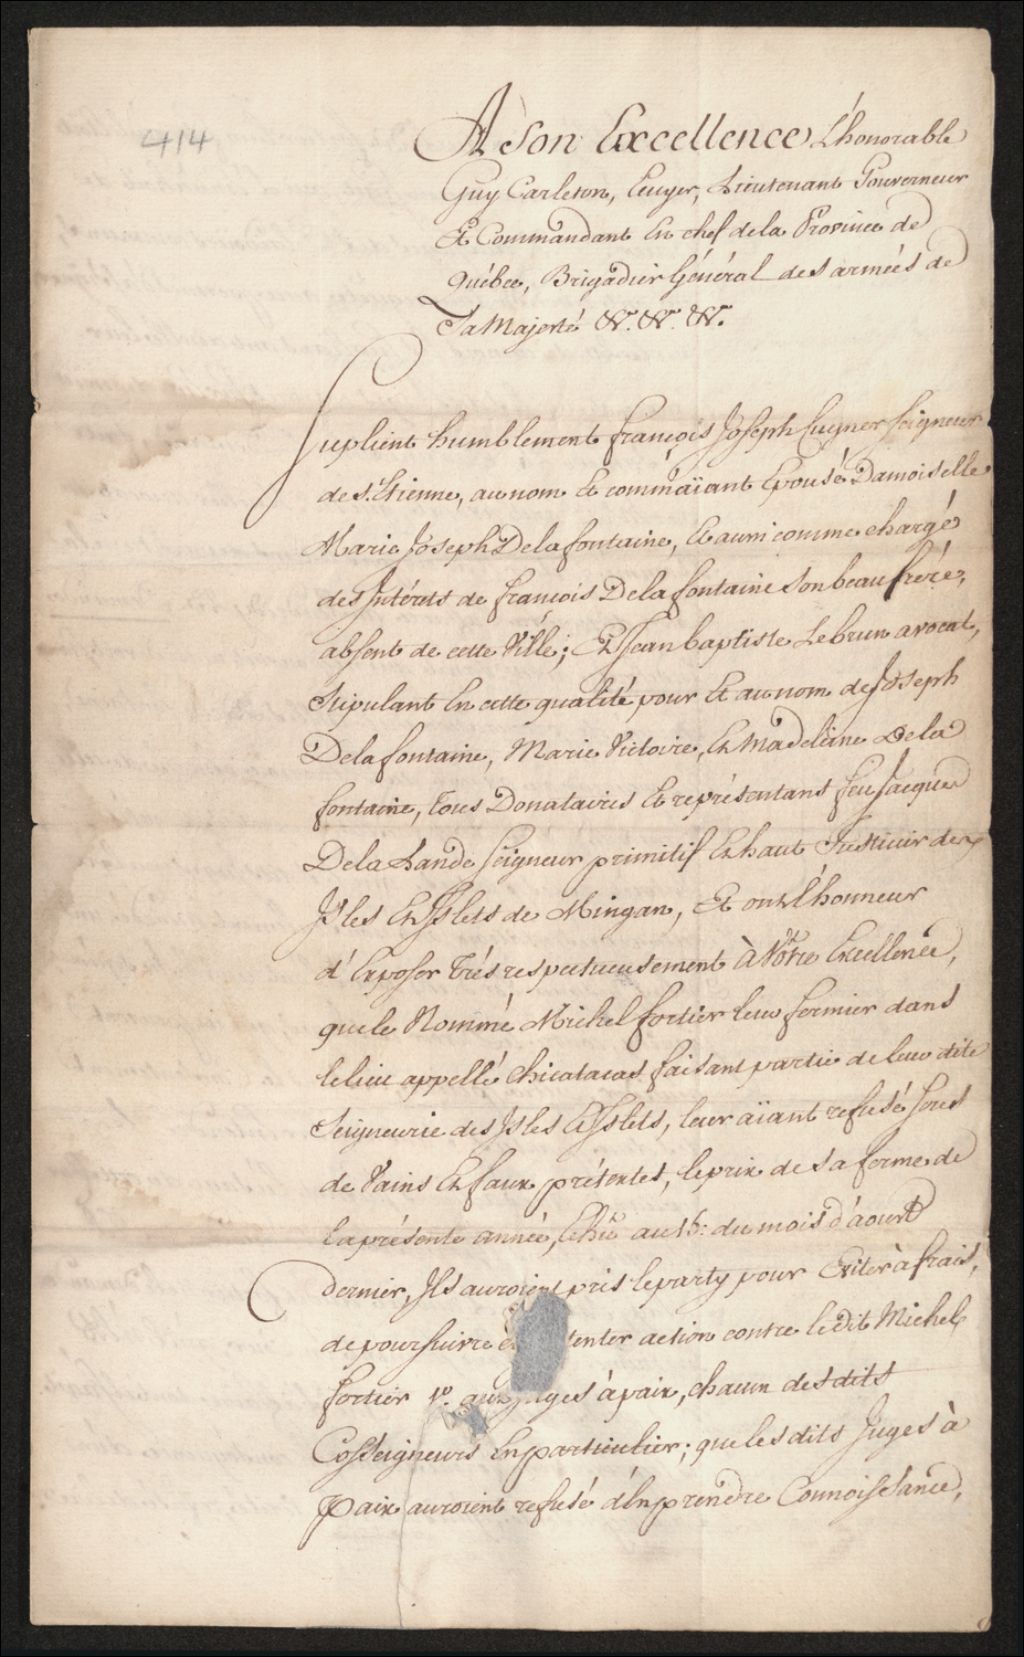 414
A Son Excellence L'honorable
Guy Carleton, Ecuyer, Lieutenant Gouverneur
Et Commandant En chef de la Province de
Québec, Brigadier Général des armées de
Sa Majesté &c. &c. &c.
Suplient humblement françois Joseph Cugnet Seigneur
de St. Etienne, au nom Et comme aïant Epousé Damoiselle
Marie Joseph Delafontaine, Et aussi comme chargé
des Intérets de francois Delafontaine Son beau frere,
absent de cette Ville; Et Jean baptiste Lebrun avocat,
Stipulant En cette qualité pour Et au nom de Joseph
Delafontaine, Marie Victoire, Et Madeleine Dela
fontaine, tous Donataires Et représentant feu Jacques
De la Lande Seigneur primitif Et haut Justicier des
Isles Et Islets de Mingan, Et ont L'honneur
d'Exposer trés respectueusement à Vôtre Excellence,
que le Nommé Michel fortier leur fermier dans
le lieu appellé Chicatacas faisant partie de leur dite
Seigneurie des Isles Et Islets, leur aïant refusé sous
de Vains Et faux prétextes, le prix de sa ferme de
la présente année, Echû au 15: du mois d'aoust
dernier, Ils auroient pris le party pour Eviter à frais,
de poursuivre tenter action contre le dit Michel
fortier 1º. aux Juges à paix, chacun des dits
CoSeigneurs En particulier; que les dits Juges à
Paix auroient refusé d'En prendre Connoissance,